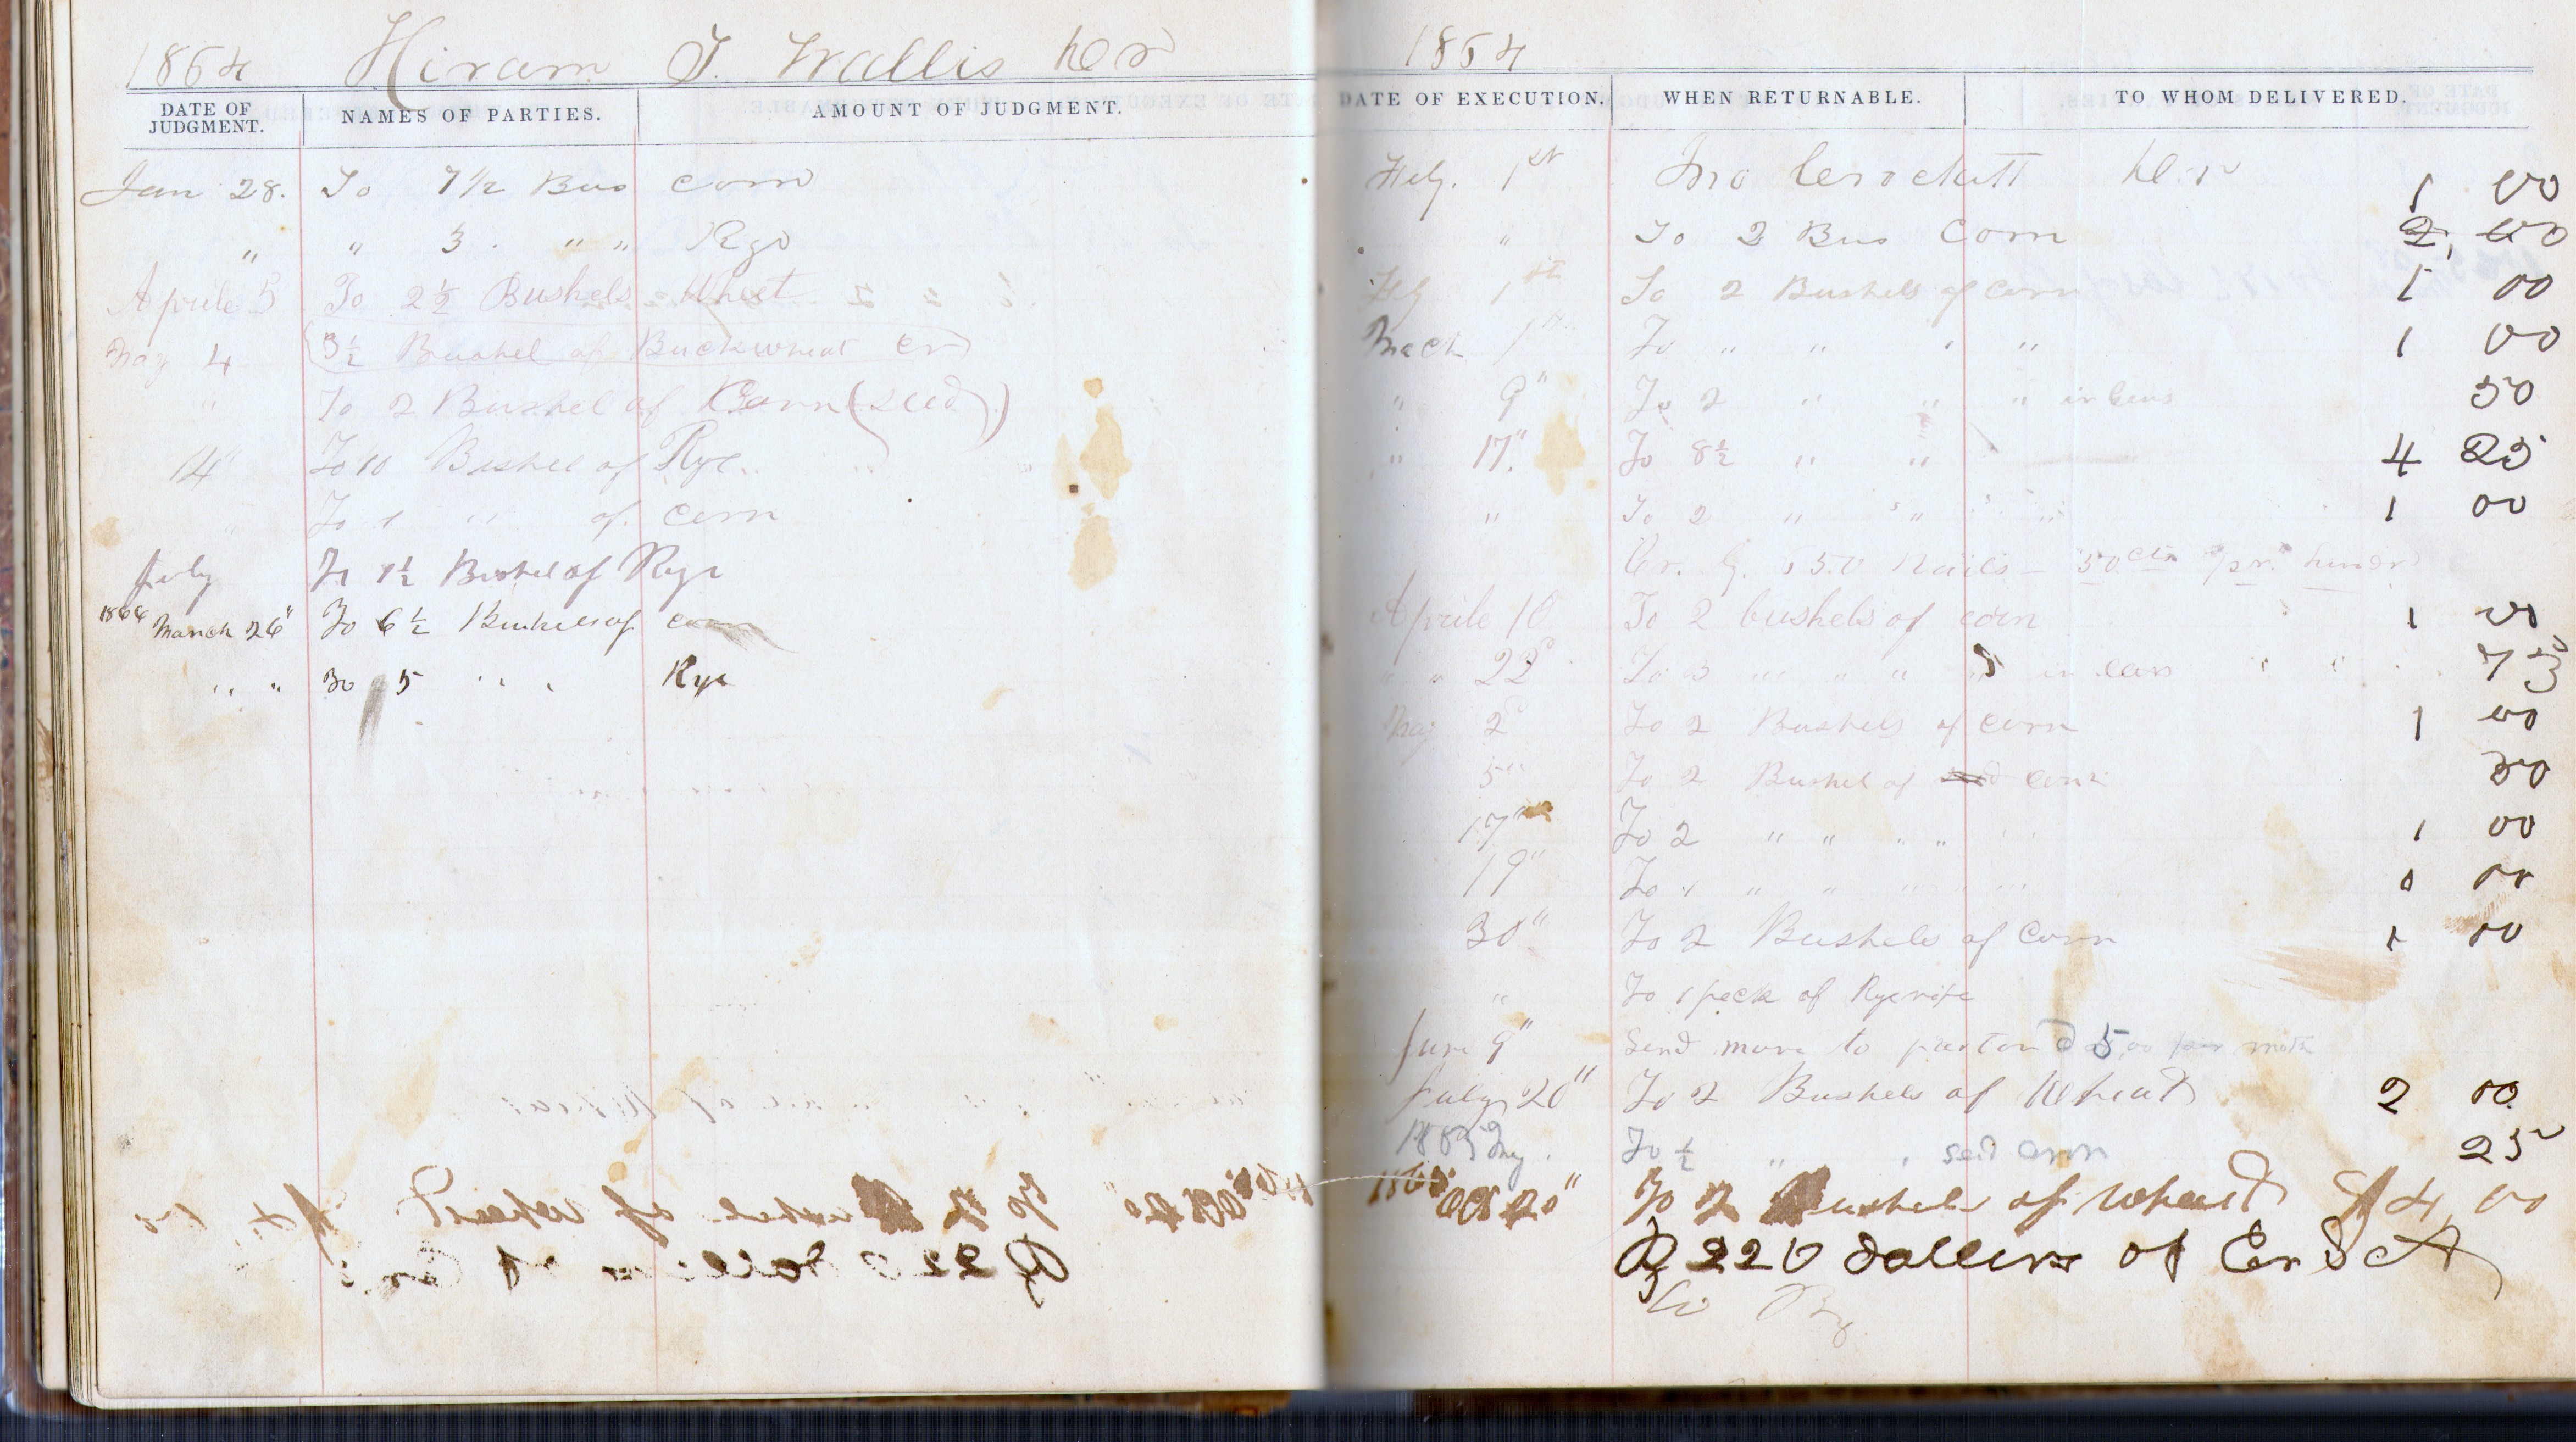 1864 Hiram T. Wallis Dr
DATE OF JUDGMENT. NAMES OF PARTIES. AMOUNT OF JUDGMENT.
Jan 28. To 7 1/2 Bus corn
" " 3 . " " Rye
Aprile 5 To 2 1/2 Bushels Wheet
May 4 (3 1/2 Bushel of Buckwheat Cr)
" To 2 Bushel of Corn (seed)
14" To 10 Bushel of Rye
" To 1 " of corn
July To 1 1/2 Bushel of Rye
1866 March 26" To 6 1/2 Bushels of corn
" " To 5 " " Rye
1864
DATE OF EXECUTION. WHEN RETURNABLE. TO WHOM DELIVERED.
Feby. 1st Jno Crockett Dr 1 00
" To 2 Bus Corn 2, 00
Feb 1st To 2 Bushels of corn 1 00
March 1st To " " " " 1 00
" 9" To 2 " " " in ears 50
" 17" To 8 1/2 " " 4 25
" To 2 " " " " 1 00
Cr. By 650 Nails - 50 cts pr. hundr
Aprile 10 To 2 bushels of corn 1 00
" " 22d To 3 " " " " in ears 75
May 2d To 2 Bushels of corn 1 00
5" To 2 Bushel of seed corn 50
17" To 2 " " " " 1 00
19" To 1 " " " " "
30" To 2 Bushels of Corn 1 00
" To 1 peck of Rye
June 9" Send mare to pasture 5.00 per month
July 20" To 2 Bushels of Wheat 2 00
1865 May To 1/2 " " seed corn 25
1865 Oct 20" To 2 Bushels of wheat $4,00
By 220 dollers of
By